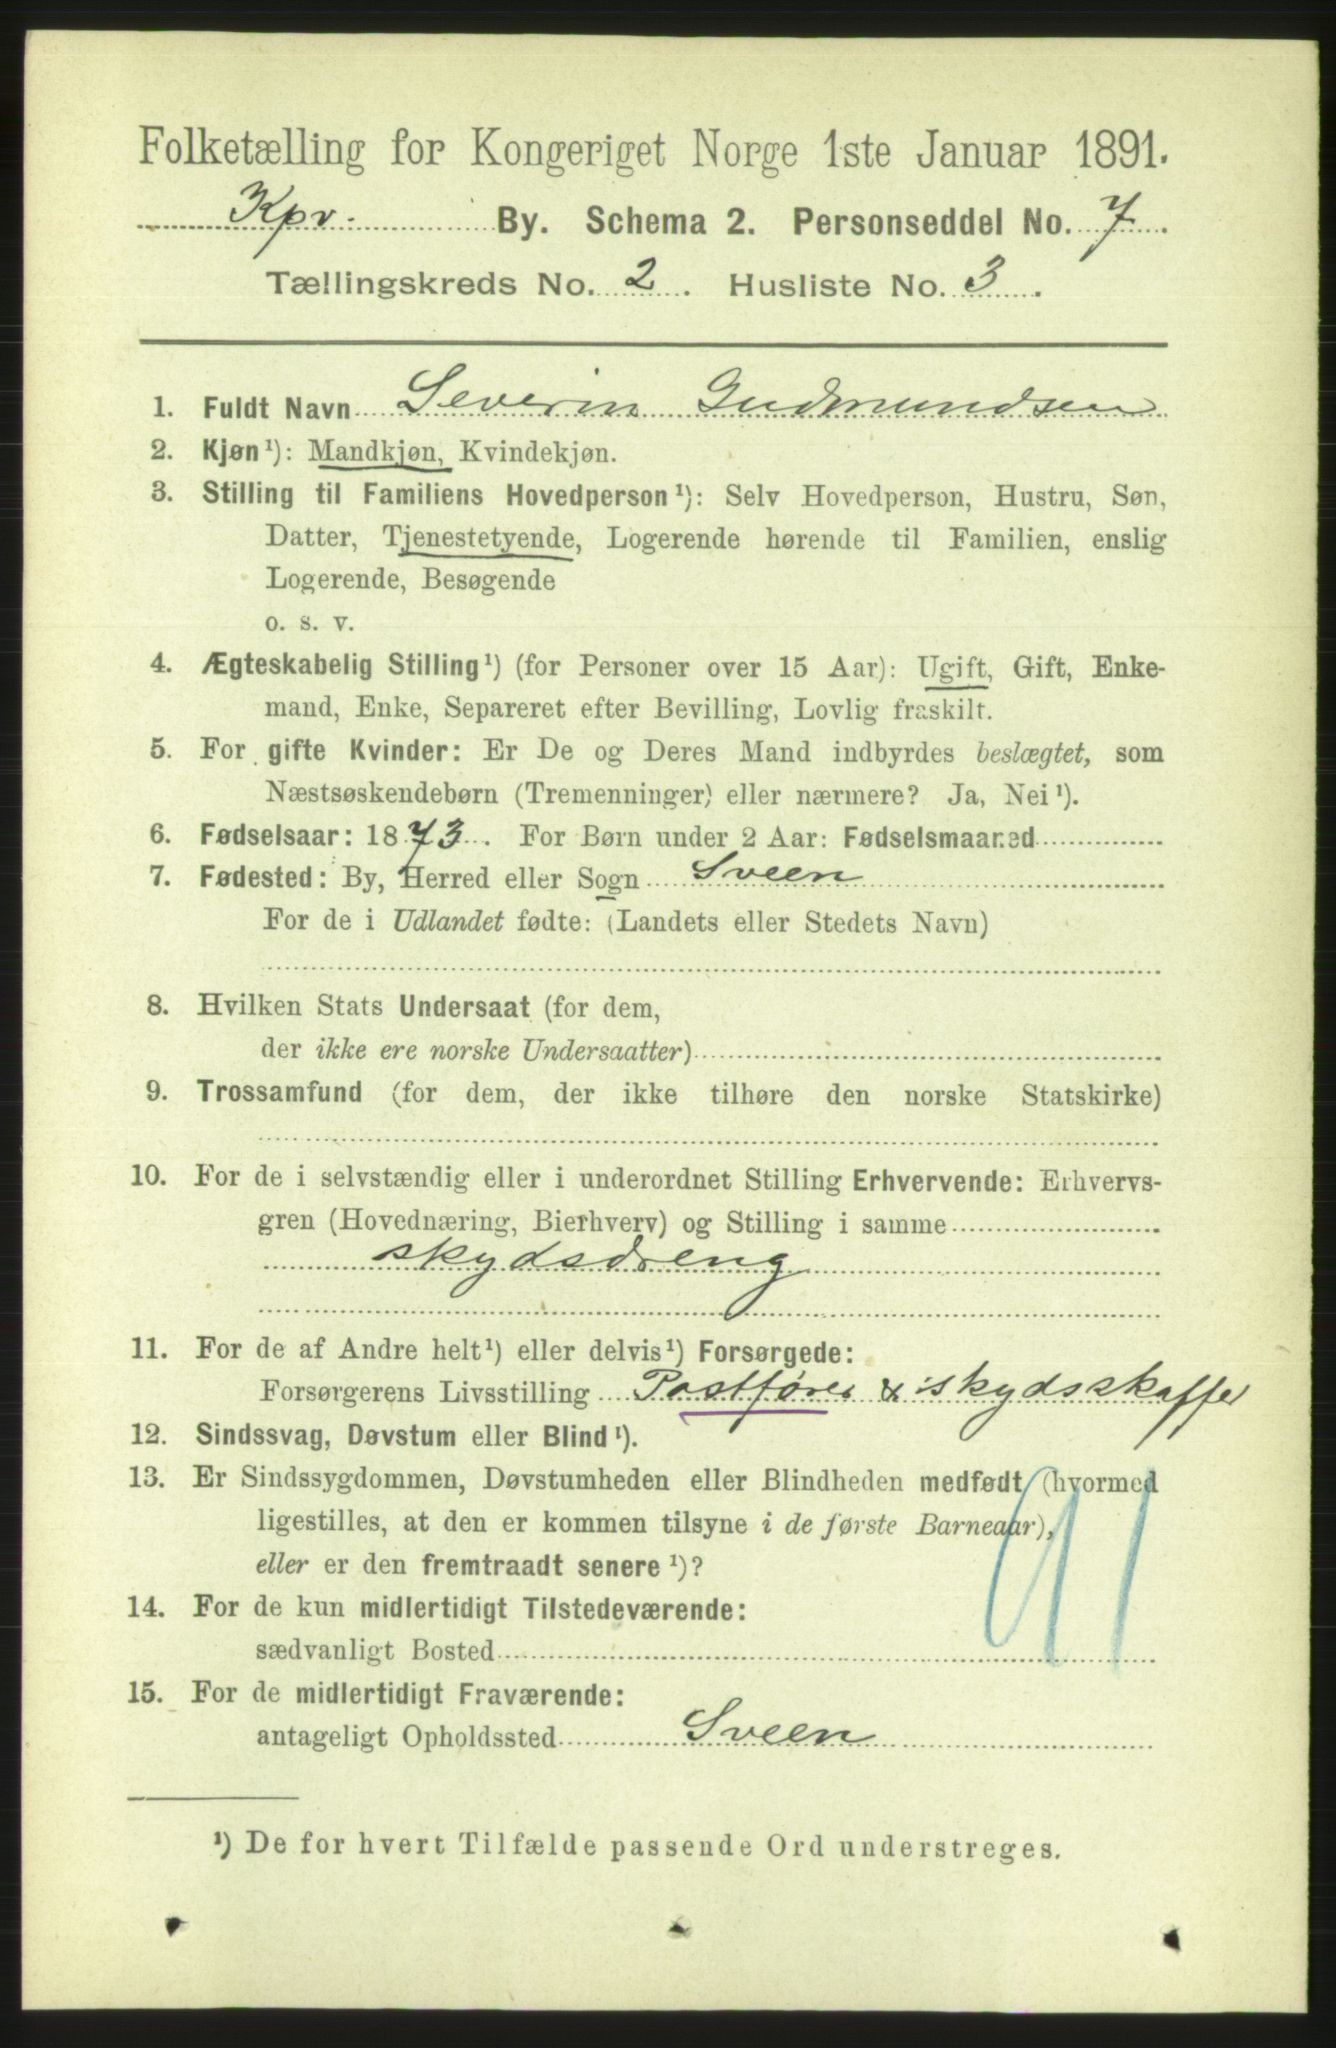 Folketælling for Kongeriget Norge 1ste Januar 1891.
Kpv. By. Schema 2. Personseddel No. 7.
Tællingskreds No. 2. Husliste No. 3.
1. Fuldt Navn Severin Gudmundsen
2. Kjøn¹): Mandkjøn, Kvindekjøn.
3. Stilling til Familiens Hovedperson¹): Selv Hovedperson, Hustru, Søn,
Datter, Tjenestetyende, Logerende hørende til Familien, enslig
Logerende, Besøgende
o. s. v.
4. Ægteskabelig Stilling¹) (for Personer over 15 Aar): Ugift, Gift, Enke-
mand, Enke, Separeret efter Bevilling, Lovlig fraskilt.
5. For gifte Kvinder: Er De og Deres Mand indbyrdes beslægtet, som
Næstsøskendebørn (Tremenninger) eller nærmere? Ja, Nei¹).
6. Fødselsaar: 1873. For Børn under 2 Aar: Fødselsmaaned
7. Fødested: By, Herred eller Sogn Sveen
For de i Udlandet fødte: (Landets eller Stedets Navn)
8. Hvilken Stats Undersaat (for dem,
der ikke ere norske Undersaatter)
9. Trossamfund (for dem, der ikke tilhøre den norske Statskirke)
10. For de i selvstændig eller i underordnet Stilling Erhvervende: Erhvervs-
gren (Hovednæring, Bierhverv) og Stilling i samme
skydsdreng
11. For de af Andre helt¹) eller delvis¹) Forsørgede:
Forsørgerens Livsstilling Postfører & skydsskaffer
12. Sindssvag, Døvstum eller Blind¹).
13. Er Sindssygdommen, Døvstumheden eller Blindheden medfødt (hvormed
ligestilles, at den er kommen tilsyne i de første Barneaar),
eller er den fremtraadt senere¹)?
91
14. For de kun midlertidigt Tilstedeværende:
sædvanligt Bosted
15. For de midlertidigt Fraværende:
antageligt Opholdssted Sveen
¹) De for hvert Tilfælde passende Ord understreges.